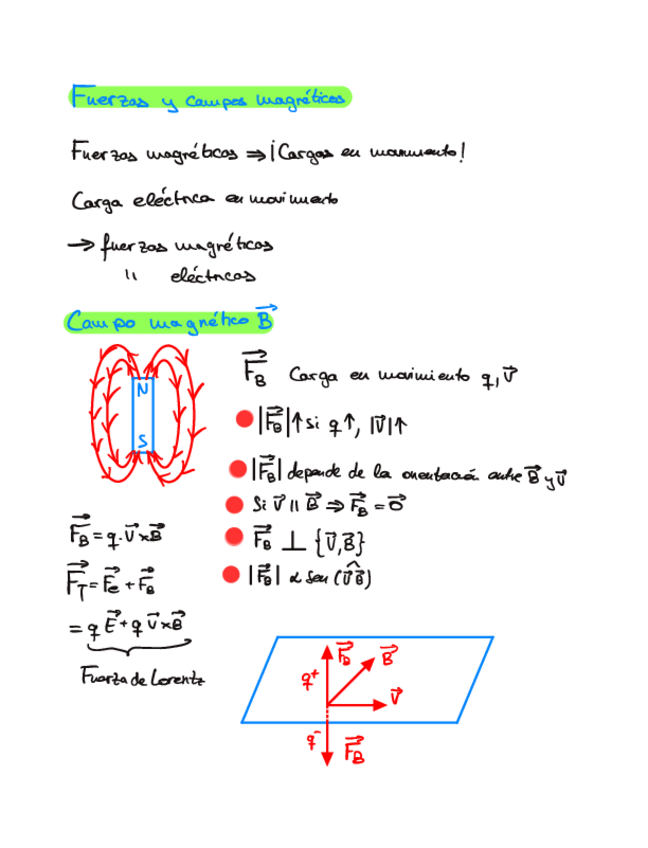 Fuerzas y campos magnéticos
Fuerzas magnéticas ⇒ ¡Cargas en movimiento!
Carga eléctrica en movimiento
→ fuerzas magnéticas
" eléctricas
Campo magnético B⃗
N
S
F⃗_B Carga en movimiento q, v⃗
|F⃗_B|↑ si q↑, |v⃗|↑
|F⃗_B| depende de la orientación entre B⃗ y v⃗
Si v⃗ || B⃗ ⇒ F⃗_B = 0⃗
F⃗_B ⊥ {v⃗, B⃗}
|F⃗_B| ∝ sen (v⃗ B⃗)
F⃗_B = q · v⃗ × B⃗
F⃗_T = F⃗_e + F⃗_B
= q E⃗ + q v⃗ × B⃗
Fuerza de Lorentz
F⃗_B B⃗
q⁺
v⃗
q⁻ F⃗_B